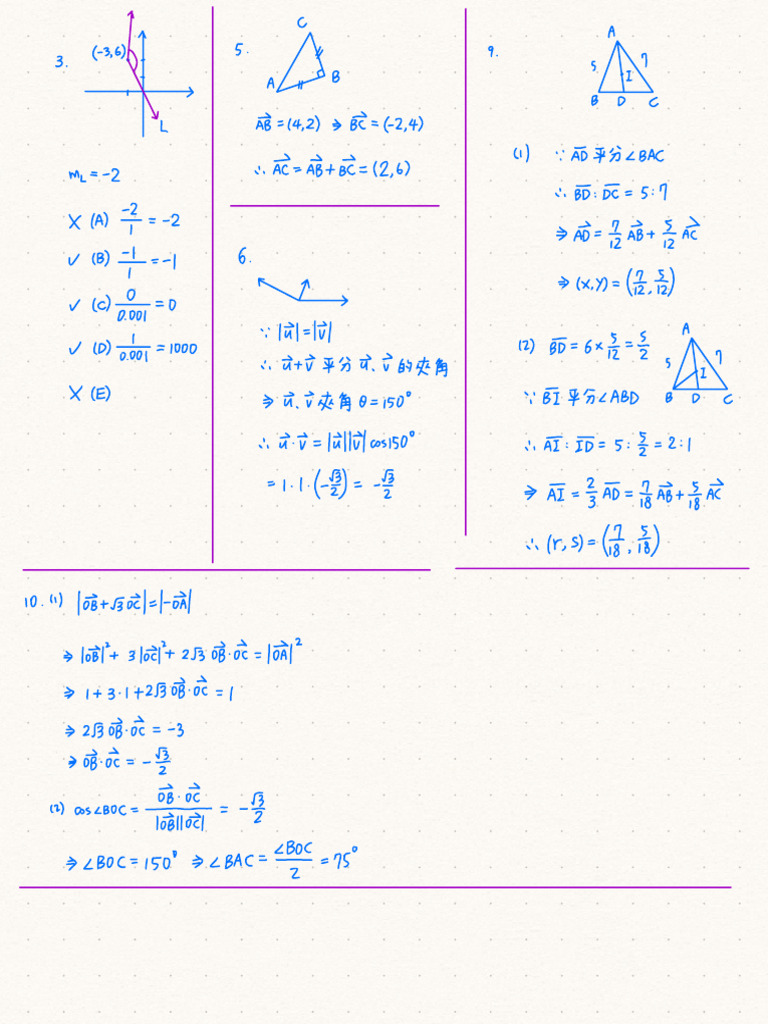 3.
(-3,6)
L
m_L = -2
X (A) \frac{-2}{1} = -2
✓ (B) \frac{-1}{1} = -1
✓ (C) \frac{0}{0.001} = 0
✓ (D) \frac{1}{0.001} = 1000
X (E)
5.
C
A
B
\vec{AB} = (4,2) ⇒ \vec{BC} = (-2,4)
∴ \vec{AC} = \vec{AB} + \vec{BC} = (2,6)
6.
∵ |\vec{u}| = |\vec{v}|
∴ \vec{u}+\vec{v} 平分 \vec{u}、\vec{v} 的夾角
⇒ \vec{u}、\vec{v} 夾角 θ = 150°
∴ \vec{u}·\vec{v} = |\vec{u}||\vec{v}| cos150°
= 1·1·(-\frac{√3}{2}) = -\frac{√3}{2}
9.
A
5
7
I
B D C
(1) ∵ \overline{AD} 平分 ∠BAC
∴ \overline{BD} : \overline{DC} = 5:7
⇒ \vec{AD} = \frac{7}{12} \vec{AB} + \frac{5}{12} \vec{AC}
⇒ (x,y) = (\frac{7}{12}, \frac{5}{12})
(2) \overline{BD} = 6 × \frac{5}{12} = \frac{5}{2}
A
5
7
I
B D C
∵ \overline{BI} 平分 ∠ABD
∴ \overline{AI} : \overline{ID} = 5 : \frac{5}{2} = 2:1
⇒ \vec{AI} = \frac{2}{3} \vec{AD} = \frac{7}{18} \vec{AB} + \frac{5}{18} \vec{AC}
∴ (r,s) = (\frac{7}{18}, \frac{5}{18})
10. (1) |\vec{OB} + √3 \vec{OC}| = |-\vec{OA}|
⇒ |\vec{OB}|² + 3|\vec{OC}|² + 2√3 \vec{OB}·\vec{OC} = |\vec{OA}|²
⇒ 1 + 3·1 + 2√3 \vec{OB}·\vec{OC} = 1
⇒ 2√3 \vec{OB}·\vec{OC} = -3
⇒ \vec{OB}·\vec{OC} = -\frac{√3}{2}
(2) cos∠BOC = \frac{\vec{OB}·\vec{OC}}{|\vec{OB}||\vec{OC}|} = -\frac{√3}{2}
⇒ ∠BOC = 150° ⇒ ∠BAC = \frac{∠BOC}{2} = 75°